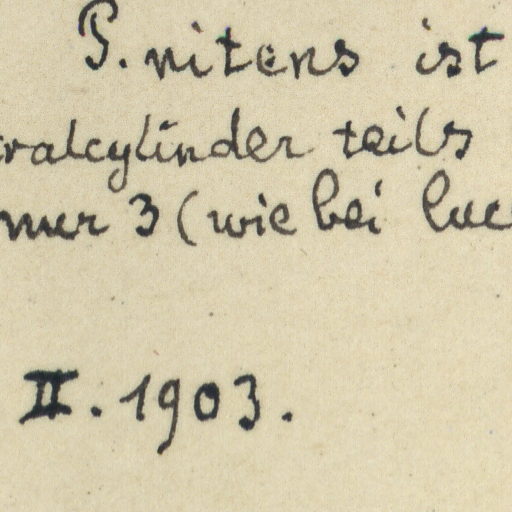 P. nitens ist
ralcylinder teils
nur 3 (wie bei luc
II. 1903.